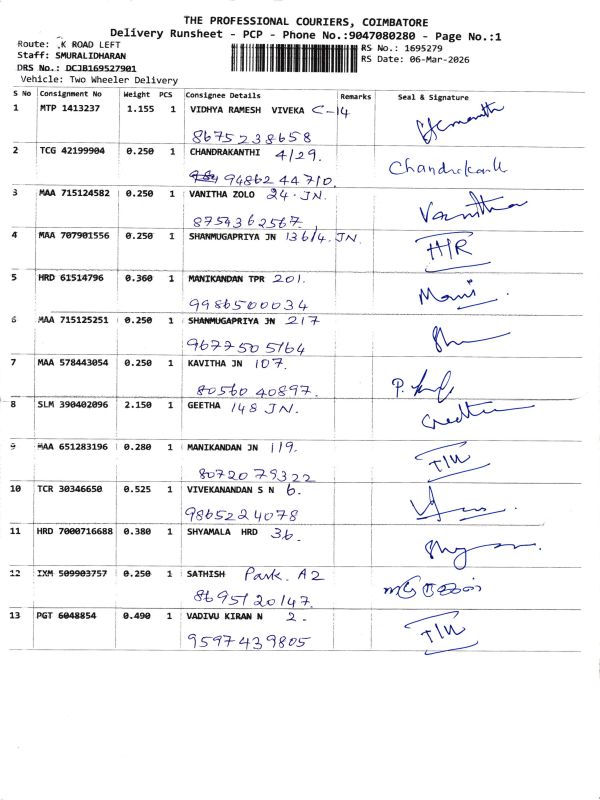 THE PROFESSIONAL COURIERS, COIMBATORE
Delivery Runsheet - PCP - Phone No.:9047080280 - Page No.:1
Route: .K ROAD LEFT
RS No.: 1695279
Staff: SMURALIDHARAN
RS Date: 06-Mar-2026
DRS No.: DCJB169527901
Vehicle: Two Wheeler Delivery
S No Consignment No Weight PCS Consignee Details Remarks Seal & Signature
1 MTP 1413237 1.155 1 VIDHYA RAMESH VIVEKA C-14
8675238658
2 TCG 42199904 0.250 1 CHANDRAKANTHI 4/29.
94862 44710.
3 MAA 715124582 0.250 1 VANITHA ZOLO 24.JN.
8754362567. Vanitha
4 MAA 707901556 0.250 1 SHANMUGAPRIYA JN 136/4.JN. H/R
5 HRD 61514796 0.360 1 MANIKANDAN TPR 201.
9986500034 Mani
6 MAA 715125251 0.250 1 SHANMUGAPRIYA JN 217
9677505164
7 MAA 578443054 0.250 1 KAVITHA JN 107.
80560 40897.
8 SLM 390402096 2.150 1 GEETHA 148 JN.
9 MAA 651283196 0.280 1 MANIKANDAN JN 119.
8072079322
10 TCR 30346650 0.525 1 VIVEKANANDAN S N 6.
9865224078
11 HRD 7000716688 0.380 1 SHYAMALA HRD 36.
12 IXM 509903757 0.250 1 SATHISH Park. A2
8695120147.
13 PGT 6048854 0.490 1 VADIVU KIRAN N 2.
9597439805